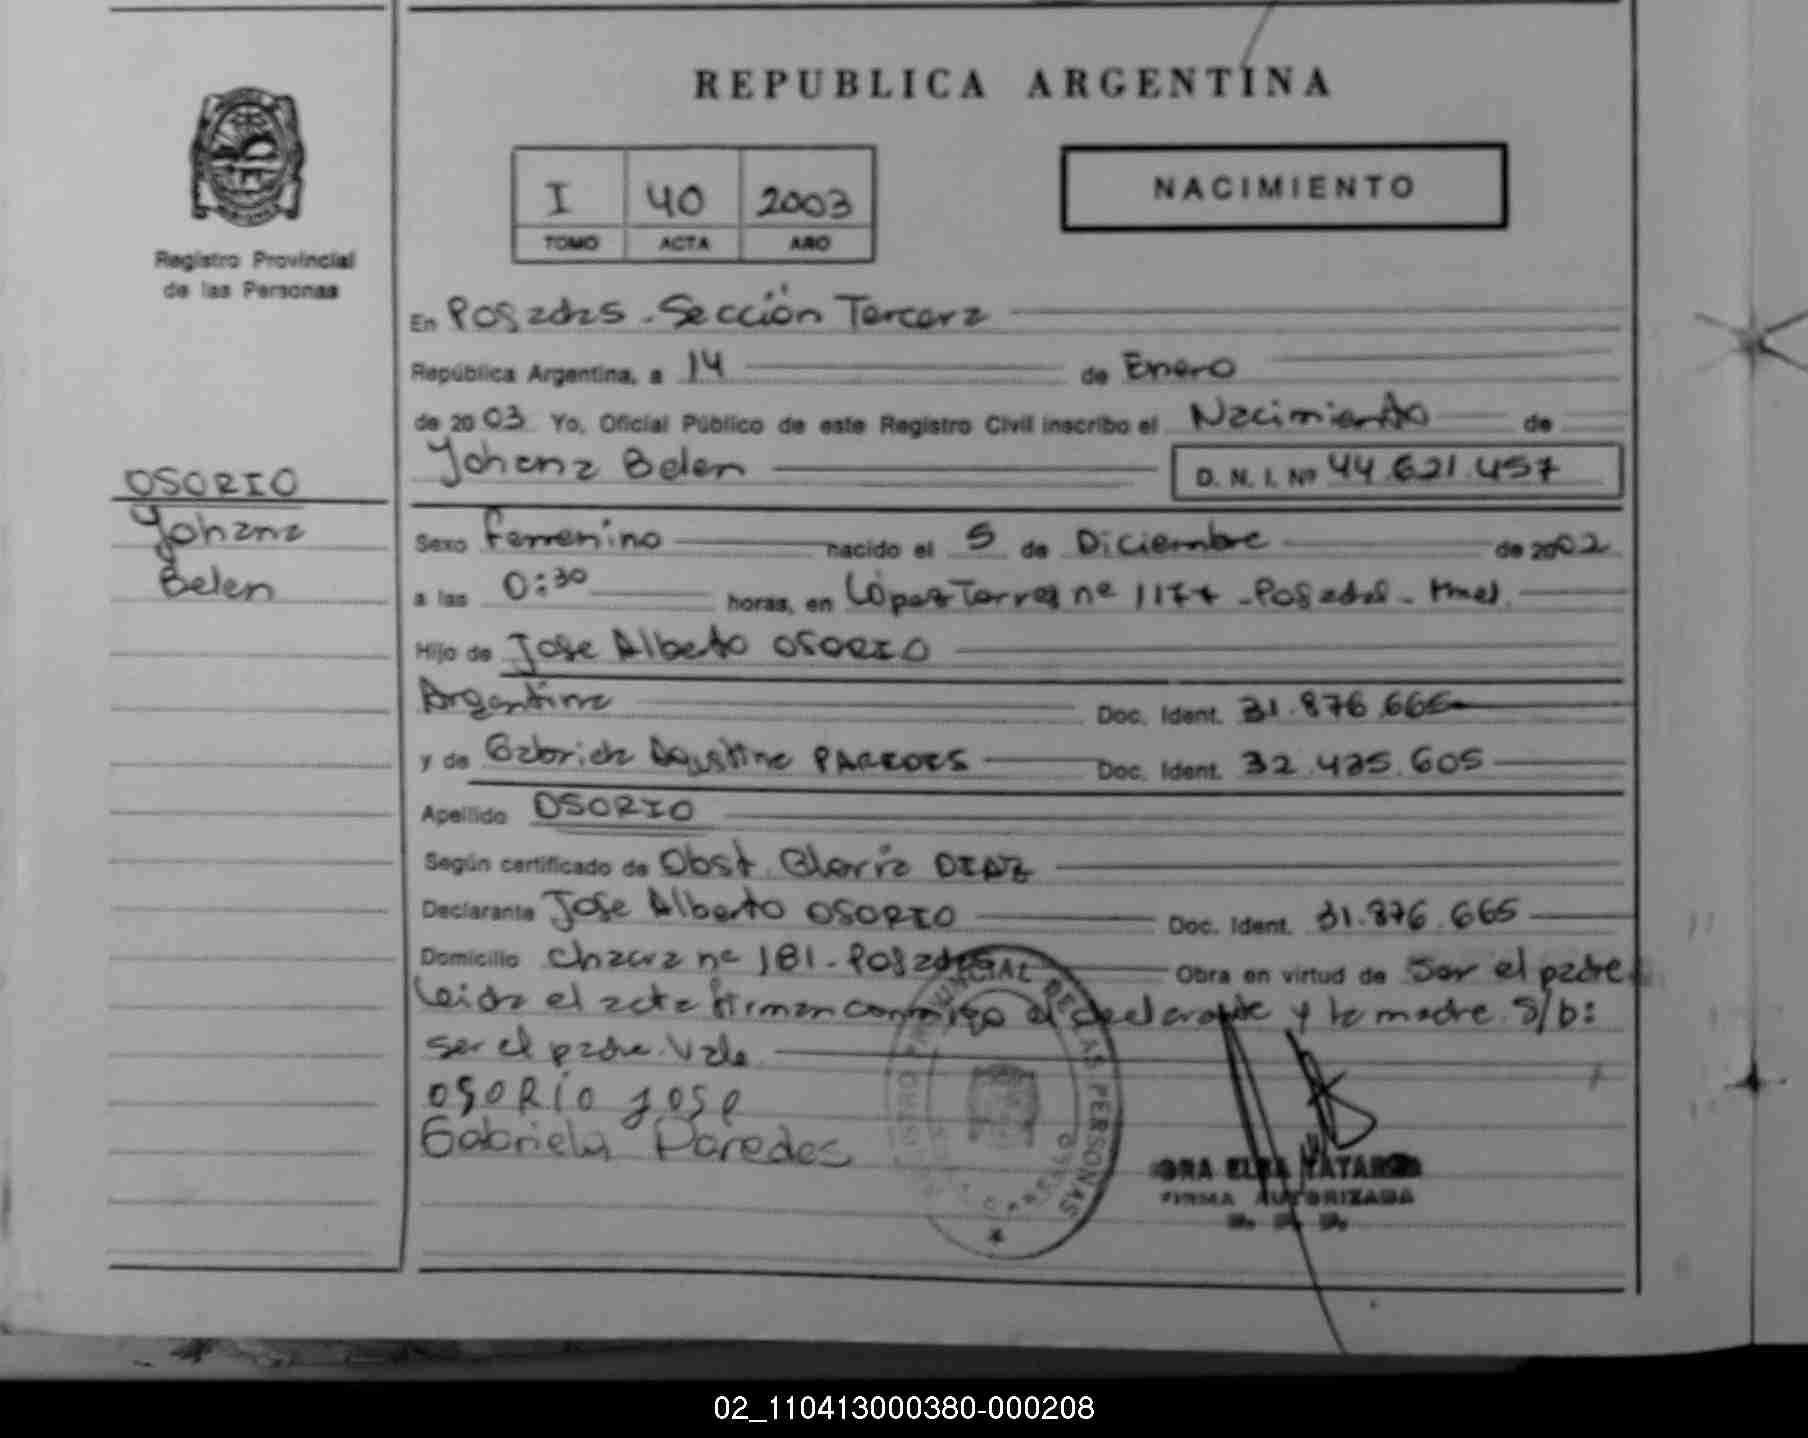 REPUBLICA ARGENTINA
I 40 2003
TOMO ACTA AÑO
NACIMIENTO
Registro Provincial
de las Personas
En Posadas - Sección Tercera
República Argentina, a 14 de Enero
de 2003 Yo, Oficial Público de este Registro Civil inscribo el Nacimiento de
Yohana Belen D. N. I. Nº 44.621.457
OSORIO
Yohana
Belen
Sexo femenino nacido el 5 de Diciembre de 2002
a las 0:30 horas, en López Torres nº 1177 - Posadas - Mnes.
Hijo de Jose Alberto OSORIO
Argentina Doc. Ident. 31.876.665
y de Gabriela Agustina PAREDES Doc. Ident. 32.435.605
Apellido OSORIO
Según certificado de Obst. Gloria DIAZ
Declarante Jose Alberto OSORIO Doc. Ident. 31.876.665
Domicilio Chacra nº 181 - Posadas Obra en virtud de Ser el padre
Leida el acta firman conmigo el declarante y la madre. S/b:
ser el padre. Vale
OSORIO JOSE
Gabriela Paredes
PROVINCIAL DE LAS PERSONAS
FIRMA AUTORIZADA
02_110413000380-000208